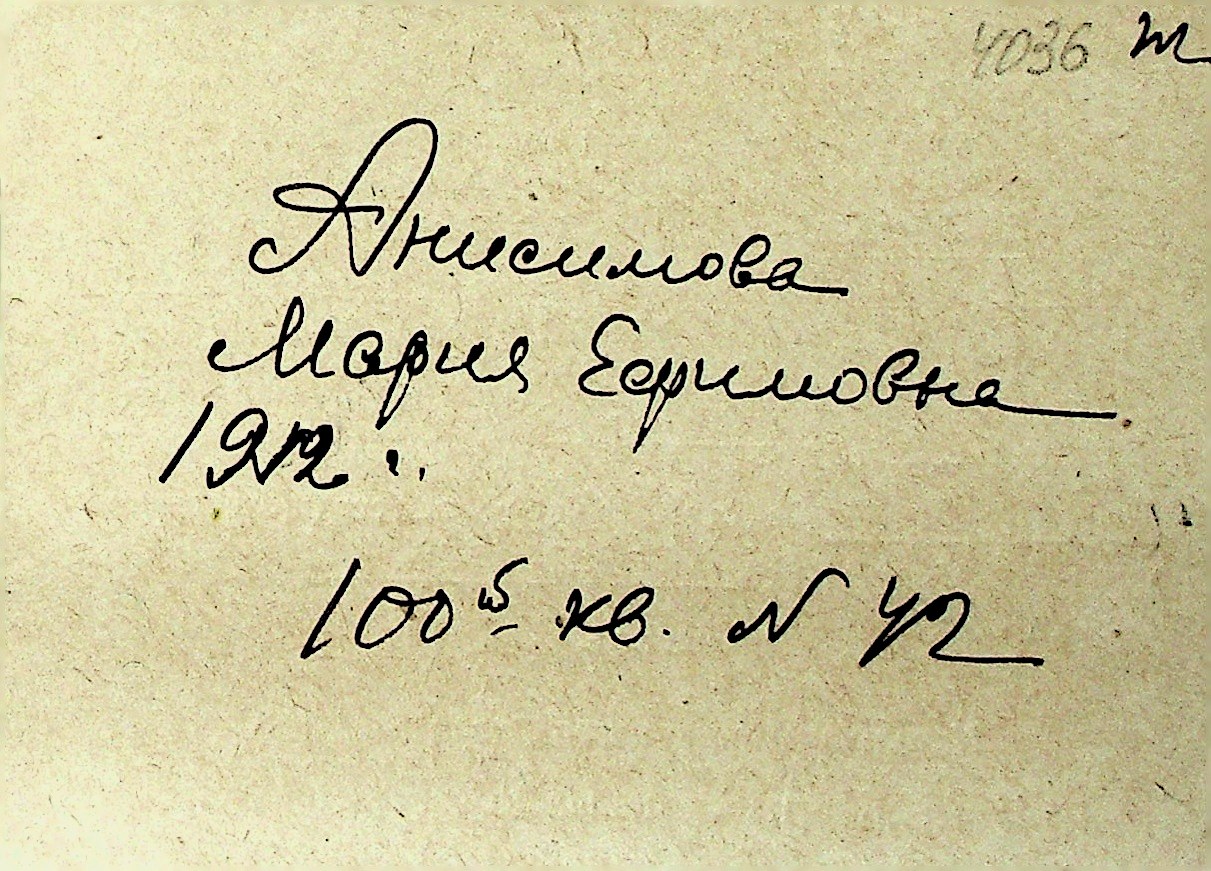 4036 т
Анисимова
Мария Ефимовна
1912
100й кв. N 42